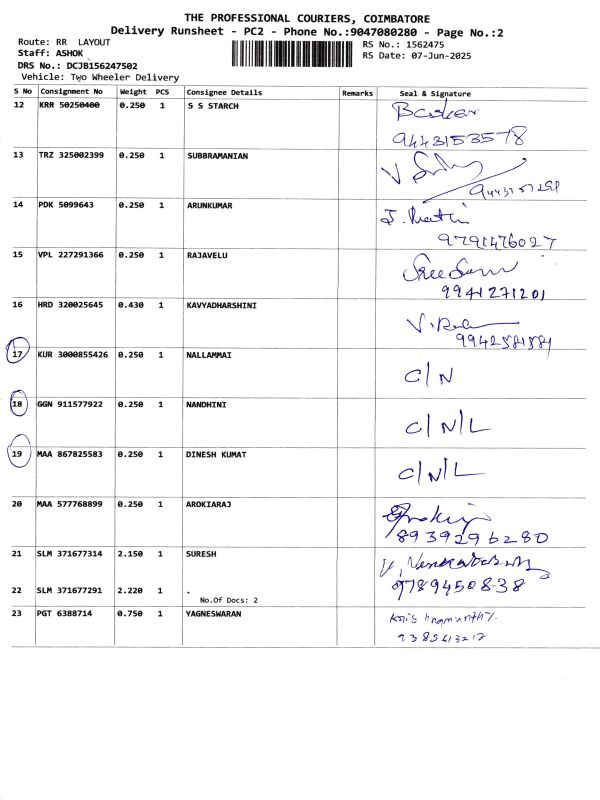 THE PROFESSIONAL COURIERS, COIMBATORE
Delivery Runsheet - PC2 - Phone No.:9047080280 - Page No.:2
Route: RR LAYOUT
RS No.: 1562475
Staff: ASHOK
RS Date: 07-Jun-2025
DRS No.: DCJB156247502
Vehicle: Two Wheeler Delivery
S No Consignment No Weight PCS Consignee Details Remarks Seal & Signature
12 KRR 50250400 0.250 1 S S STARCH Basker
9443153578
13 TRZ 325002399 0.250 1 SUBBRAMANIAN
14 PDK 5099643 0.250 1 ARUNKUMAR
9791476027
15 VPL 227291366 0.250 1 RAJAVELU
9941271201
16 HRD 320025645 0.430 1 KAVYADHARSHINI
17 KUR 3000855426 0.250 1 NALLAMMAI C/N
18 GGN 911577922 0.250 1 NANDHINI C/N/L
19 MAA 867825583 0.250 1 DINESH KUMAT C/N/L
20 MAA 577768899 0.250 1 AROKIARAJ
8939296280
21 SLM 371677314 2.150 1 SURESH
22 SLM 371677291 2.220 1 . 9789450838
No.Of Docs: 2
23 PGT 6388714 0.750 1 YAGNESWARAN